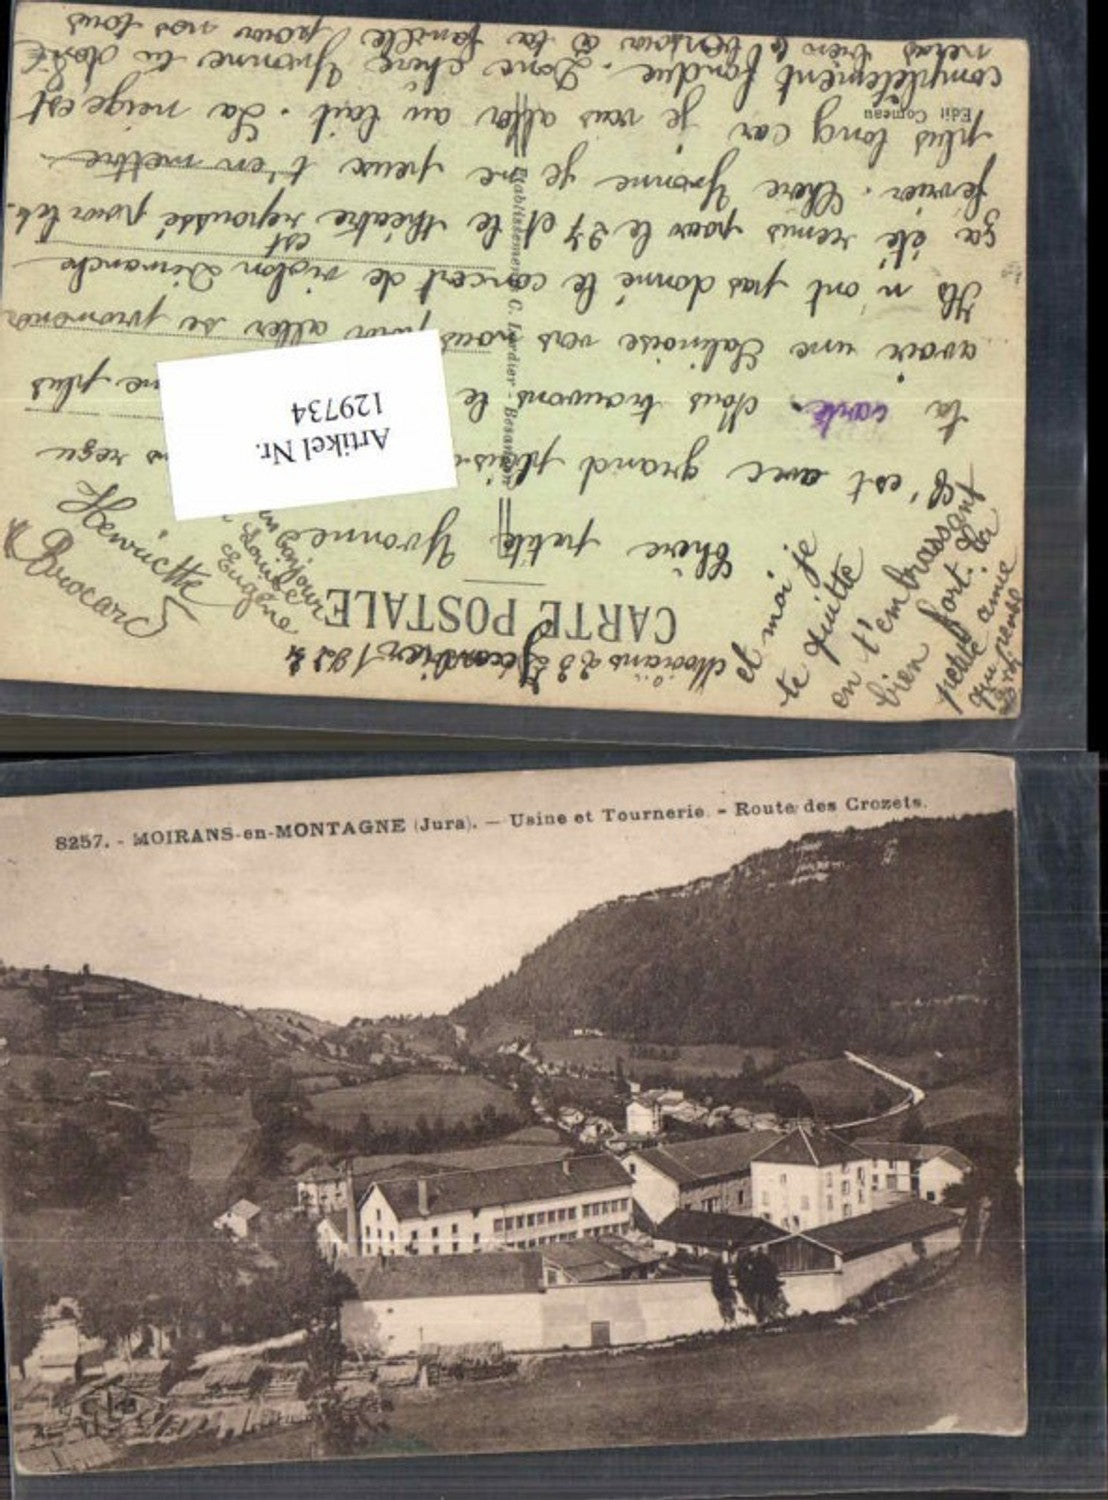 Moirans 23 Janvier 1924
CARTE POSTALE
Chère petite Yvonne
C'est avec grand plais reçu
ta carte. Nous trouvons le plus
avoir une Salinoise vers nous pour aller se promener
Ils n'ont pas donné le concert de violon Dimanche
ça été remis pour le 27 et le théâtre est repoussé pour le
fevrier. Chère Yvonne je ne peux t'en mettre
plus long car je vais aller au lait. La neige est
complètement fondue. Donc chère Yvonne tu
bien le bonsoir à ta famille pour nous tous
et moi je
te quitte
en t'embrassant
bien fort. Ta
petite amie
qui
Henriette
Brocard
bonjour
Louise
Eugène
Edit Comeau
Etablissements C. Lardier - Besançon
Artikel Nr.
129734
8257. - MOIRANS-en-MONTAGNE (Jura). — Usine et Tournerie. - Route des Crozets.